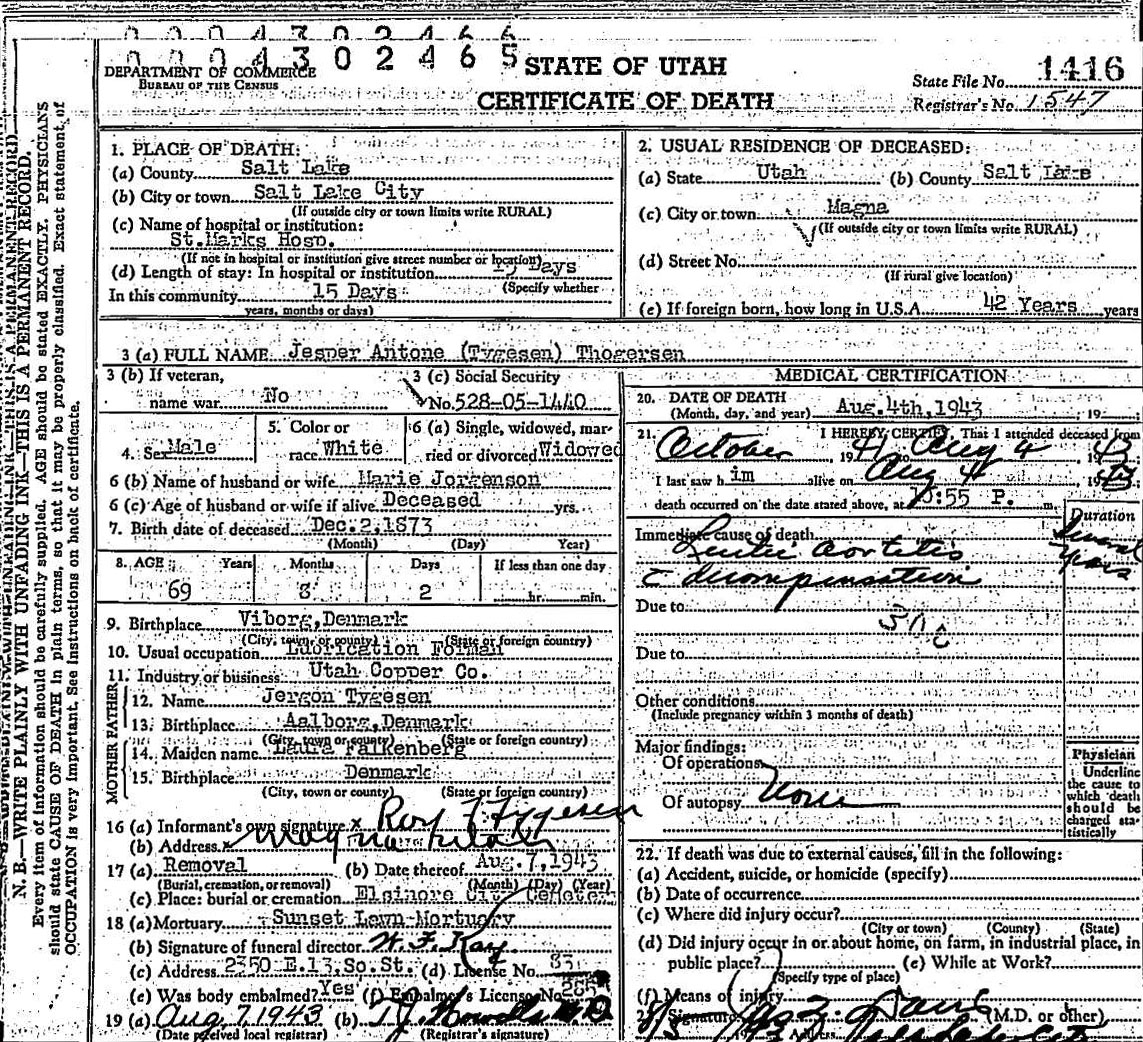 0 0 0 4 3 0 2 4 6 5
DEPARTMENT OF COMMERCE
BUREAU OF THE CENSUS
STATE OF UTAH
CERTIFICATE OF DEATH
State File No. 1416
Registrar's No. 1547
N. B.—WRITE PLAINLY WITH UNFADING INK—THIS IS A PERMANENT RECORD.
Every item of information should be carefully supplied. AGE should be stated EXACTLY. PHYSICIANS
should state CAUSE OF DEATH in plain terms, so that it may be properly classified. Exact statement of
OCCUPATION is very important. See Instructions on back of certificate.
1. PLACE OF DEATH:
(a) County Salt Lake
(b) City or town Salt Lake City
(If outside city or town limits write RURAL)
(c) Name of hospital or institution:
St.Marks Hosp.
(If not in hospital or institution give street number or location)
(d) Length of stay: In hospital or institution Days
(Specify whether
In this community 15 Days
years, months or days)
2. USUAL RESIDENCE OF DECEASED:
(a) State Utah (b) County Salt Lake
(c) City or town Magna
(If outside city or town limits write RURAL)
(d) Street No.
(If rural give location)
(e) If foreign born, how long in U.S.A. 42 Years years
3 (a) FULL NAME Jesper Antone (Tygesen) Thogersen
3 (b) If veteran,
name war No
3 (c) Social Security
No. 528-05-1440
4. Sex Male
5. Color or
race White
6 (a) Single, widowed, mar-
ried or divorced Widowed
6 (b) Name of husband or wife Marie Jorgenson
6 (c) Age of husband or wife if alive Deceased yrs.
7. Birth date of deceased Dec.2,1873
(Month) (Day) Year)
8. AGE Years Months Days If less than one day
69 8 2 hr. min.
9. Birthplace Viborg,Denmark
(City, town or county) (State or foreign country)
10. Usual occupation Lubrication Forman
11. Industry or business Utah Copper Co.
FATHER
12. Name Jergon Tygesen
13. Birthplace Aalborg,Denmark
(City, town or county) (State or foreign country)
MOTHER
14. Maiden name Laura Falkenberg
15. Birthplace Denmark
(City, town or county) (State or foreign country)
16 (a) Informant's own signature x Roy T Tygesen
(b) Address x Magna Utah
17 (a) Removal (b) Date thereof Aug.7,1943
(Burial, cremation, or removal) (Month) (Day) (Year)
(c) Place: burial or cremation Elsinore City Cemetery
18 (a) Mortuary Sunset Lawn Mortuary
(b) Signature of funeral director W. F. Kay
(c) Address 2350 E.13.So.St. (d) License No.
(e) Was body embalmed? Yes (f) Embalmer's License No.
19 (a) Aug 7, 1943 (b) T J Howells M.D
(Date received local registrar) (Registrar's signature)
MEDICAL CERTIFICATION
20. DATE OF DEATH
(Month, day, and year) Aug.4th,1943 , 19
21. I HEREBY CERTIFY, That I attended deceased from
October , 1941 to Aug 4 , 1943
I last saw h im alive on Aug 4 , 1943
death occurred on the date stated above, at :55 P. m.
Duration
Immediate cause of death
Luetic aortitis
Several
years
c decompensation
Due to
30c
Due to
Other conditions
(Include pregnancy within 3 months of death)
Major findings:
Of operations
Of autopsy None
Physician
Underline
the cause to
which death
should be
charged sta-
tistically
22. If death was due to external causes, fill in the following:
(a) Accident, suicide, or homicide (specify)
(b) Date of occurrence
(c) Where did injury occur?
(City or town) (County) (State)
(d) Did injury occur in or about home, on farm, in industrial place, in
public place? (e) While at Work?
(Specify type of place)
(f) Means of injury
Signature (M.D. or other)
Address